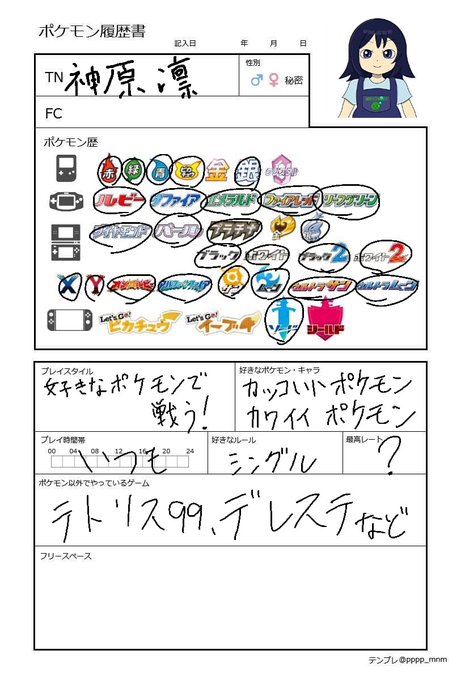 ポケモン履歴書
記入日 年 月 日
TN 神原 凛
性別
♂ ♀ 秘密
FC
ポケモン歴
赤 緑 青 ピカチュウ 金 銀 クリスタル
ルビー サファイア エメラルド ファイアレッド リーフグリーン
ダイヤモンド パール プラチナ
ブラック ホワイト ブラック2 ホワイト2
X Y オメガルビー アルファサファイア サン ムーン ウルトラサン ウルトラムーン
Let's Go! ピカチュウ Let's Go! イーブイ ソード シールド
プレイスタイル
好きなポケモンで
戦う!
好きなポケモン・キャラ
カッコいいポケモン
カワイイ ポケモン
プレイ時間帯
00 04 08 12 16 20 24
いつも
好きなルール
シングル
最高レート
?
ポケモン以外でやっているゲーム
テトリス99、デレステなど
フリースペース
テンプレ@pppp_mnm